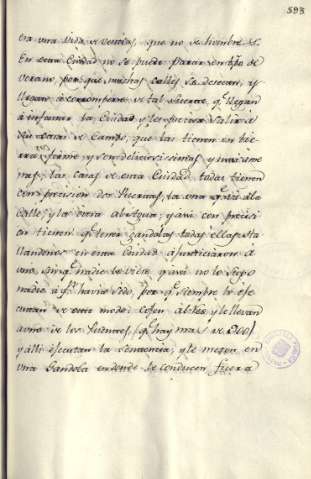 593
era una vida de vevidas, que no de hombre &.
En esta Ciudad no se puede parar en tpo de
verano, por que muchas calles se desecan, y
llegan à corromperse de tal suerte qe. llegan
à infestar la Ciudad, y les precisa salir à
sus casas de Campo, que las tienen en tie-
rra firme y son deliciosisimas, y mui ame-
nas; las casas de esta Ciudad todas tienen
con precision dos Puertas, la una qe. và à la
calle, y la otra al Agua; y asi con preci-
sion tienen qe. tener Gandolas todas ellas. Esta-
llandonos en esta Ciudad ajusticiaron à
uno, sin qe. nadie lo viese, qe. asi no lo supo
nadie à qn. havia sido, por qe. siempre lo eje-
cutan de este modo: cojen al Reo, y le llevan
à uno de los Puentes, (qe. hay mas de 500)
y alli ejecutan la sentencia, y le meten en
una Gandola en donde le conducen fuera